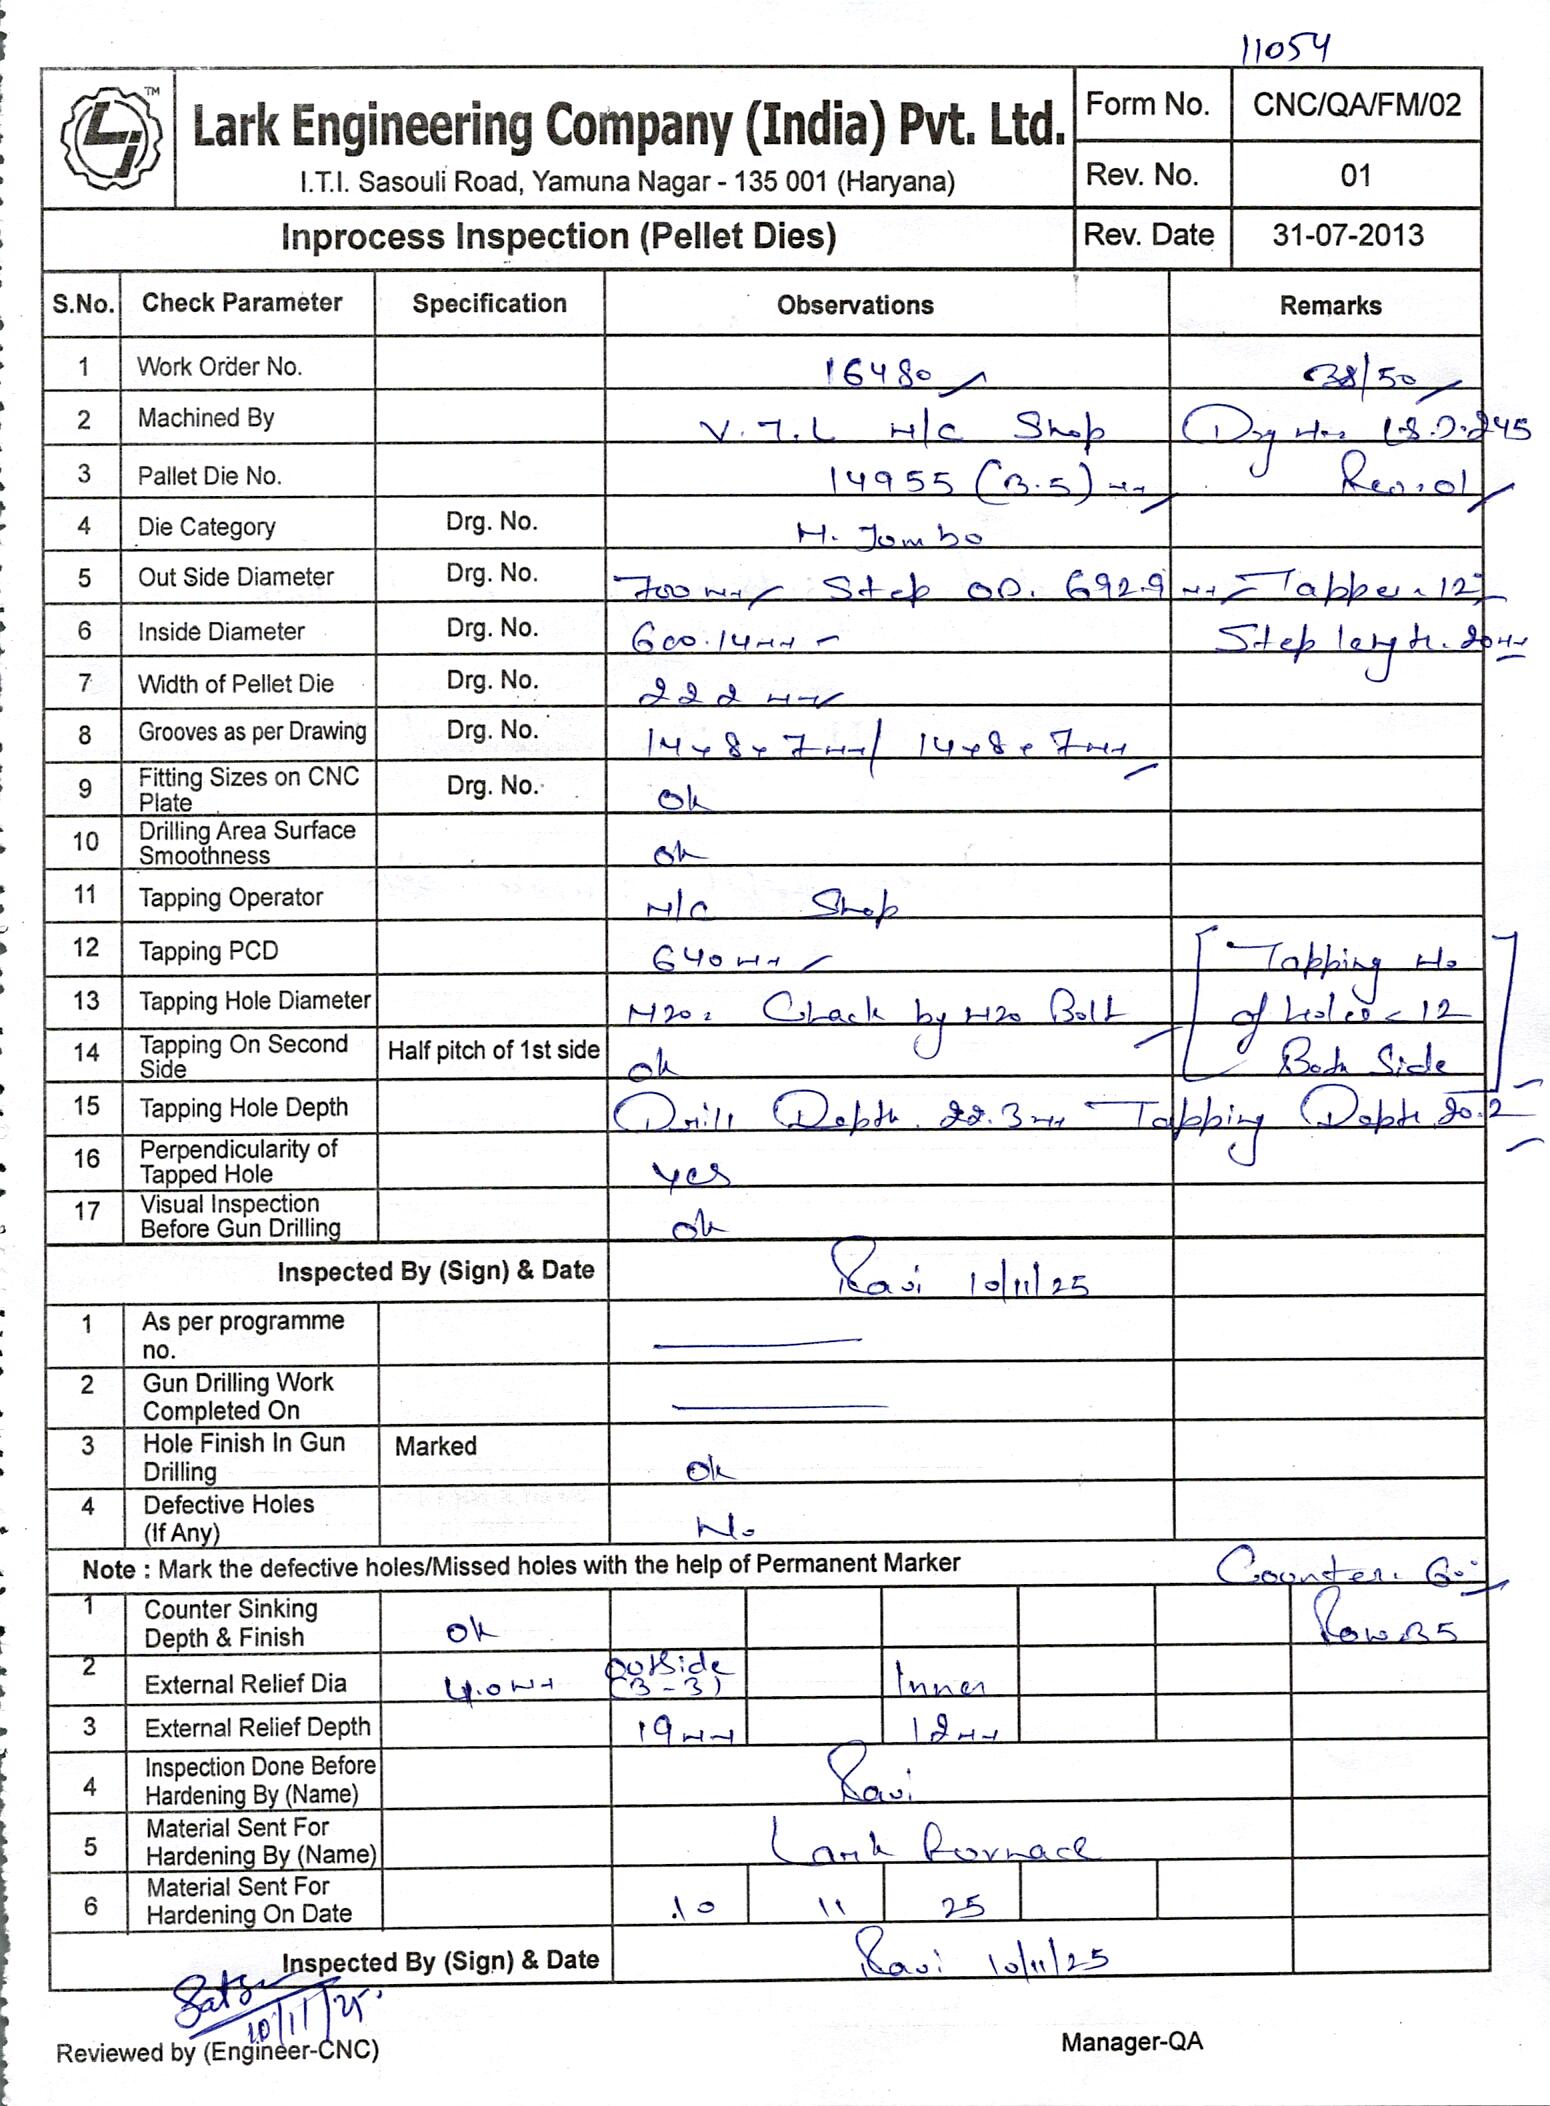 11054
TM
Lark Engineering Company (India) Pvt. Ltd.
I.T.I. Sasouli Road, Yamuna Nagar - 135 001 (Haryana)
Form No. CNC/QA/FM/02
Rev. No. 01
Inprocess Inspection (Pellet Dies) Rev. Date 31-07-2013
S.No. Check Parameter Specification Observations Remarks
1 Work Order No. 16480 38/50
2 Machined By V.T.L M/C Shop Drg No. L.S.D.245
3 Pallet Die No. 14955 (3.5) mm Rev.01
4 Die Category Drg. No. M. Jombo
5 Out Side Diameter Drg. No. 700 mm Step OD. 692.9 mm Tapper. 12°
6 Inside Diameter Drg. No. 600.14mm Step length. 20mm
7 Width of Pellet Die Drg. No. 222 mm
8 Grooves as per Drawing Drg. No. 14x8x7mm/ 14x8x7mm
9 Fitting Sizes on CNC Plate Drg. No. ok
10 Drilling Area Surface Smoothness ok
11 Tapping Operator M/C Shop
12 Tapping PCD 640mm [Tapping No
13 Tapping Hole Diameter M20. Chack by M20 Bolt of holes - 12
14 Tapping On Second Side Half pitch of 1st side ok Both Side]
15 Tapping Hole Depth Drill Depth. 22.3mm Tapping Depth 20.2
16 Perpendicularity of Tapped Hole yes
17 Visual Inspection Before Gun Drilling ok
Inspected By (Sign) & Date Ravi 10/11/25
1 As per programme no.
2 Gun Drilling Work Completed On
3 Hole Finish In Gun Drilling Marked ok
4 Defective Holes (If Any) No
Note : Mark the defective holes/Missed holes with the help of Permanent Marker Counter. 60°
1 Counter Sinking Depth & Finish ok Row.35
2 External Relief Dia 4.0mm outside (3-3) Inner
3 External Relief Depth 19mm 12mm
4 Inspection Done Before Hardening By (Name) Ravi
5 Material Sent For Hardening By (Name) Lark Fornace
6 Material Sent For Hardening On Date 10 11 25
Inspected By (Sign) & Date Ravi 10/11/25
10/11/25
Reviewed by (Engineer-CNC) Manager-QA